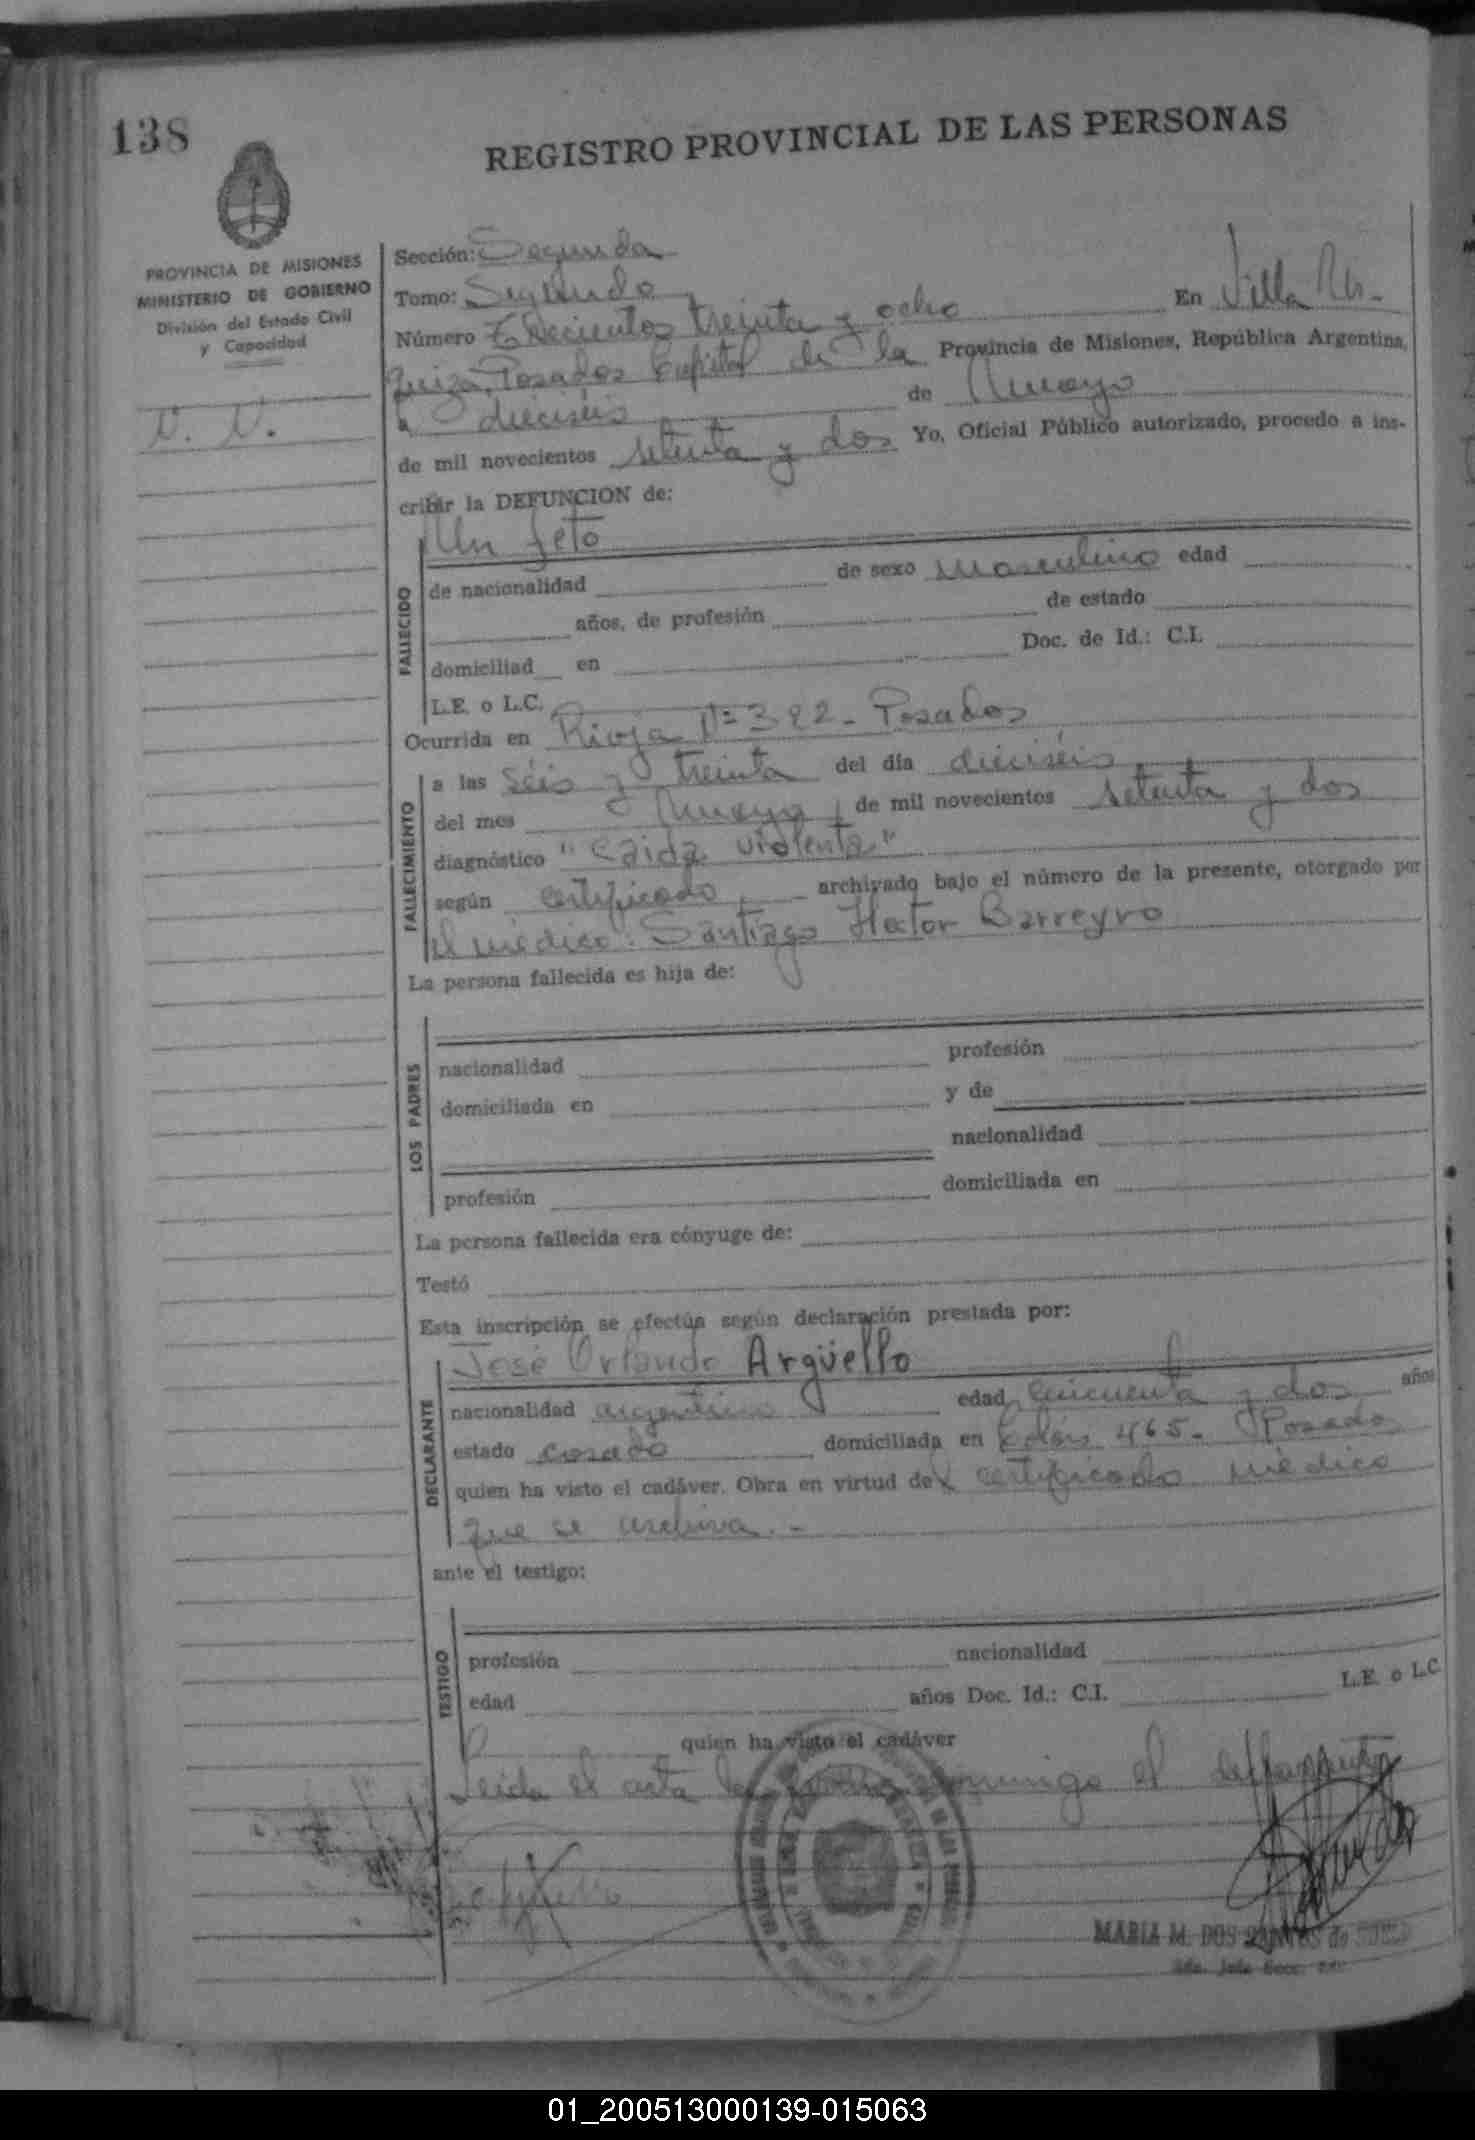 138
REGISTRO PROVINCIAL DE LAS PERSONAS
PROVINCIA DE MISIONES
MINISTERIO DE GOBIERNO
División del Estado Civil
y Capacidad
N. N.
Sección: Segunda
Tomo: Segundo
Número treinta y ocho En Villa Ur-
quiza, Posadas Capital de la Provincia de Misiones, República Argentina,
a dieciséis de Mayo
de mil novecientos setenta y dos Yo, Oficial Público autorizado, procedo a ins-
cribir la DEFUNCION de:
Un feto
FALLECIDO
de nacionalidad de sexo masculino edad
años, de profesión de estado
domiciliad en Doc. de Id.: C.I.
L.E. o L.C.
Ocurrida en Rioja Nº 392 - Posadas
FALLECIMIENTO
a las séis y treinta del día dieciséis
del mes Mayo de mil novecientos setenta y dos
diagnóstico "Caida violenta"
según certificado archivado bajo el número de la presente, otorgado por
el médico: Santiago Hector Barreyro
La persona fallecida es hija de:
LOS PADRES
nacionalidad profesión
domiciliada en y de
nacionalidad
profesión domiciliada en
La persona fallecida era cónyuge de:
Testó
Esta inscripción se efectúa según declaración prestada por:
José Orlando Argüello
DECLARANTE
nacionalidad argentino edad cincuenta y dos años
estado casado domiciliada en Colón 465- Posadas
quien ha visto el cadáver. Obra en virtud del certificado médico
que se archiva.-
ante el testigo:
TESTIGO
profesión nacionalidad
edad años Doc. Id.: C.I. L.E. o L.C.
quien ha visto el cadáver
Leida el acta la conmigo el
MARIA M. DOS SANTOS de
01_200513000139-015063